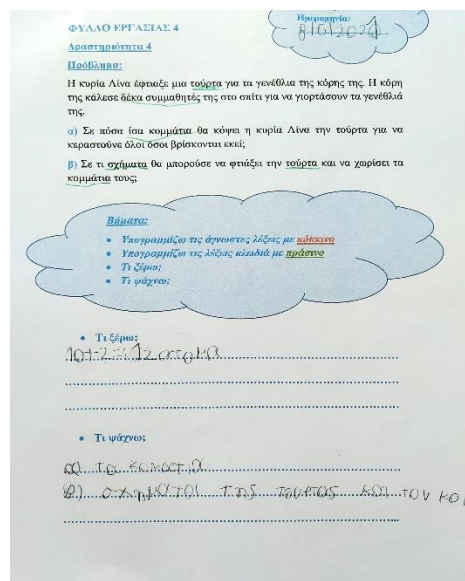 Ημερομηνία:
8/6/2021
ΦΥΛΛΟ ΕΡΓΑΣΙΑΣ 4
Δραστηριότητα 4
Πρόβλημα:
Η κυρία Λίνα έφτιαξε μια τούρτα για τα γενέθλια της κόρης της. Η κόρη
της κάλεσε δέκα συμμαθητές της στο σπίτι για να γιορτάσουν τα γενέθλιά
της.
α) Σε πόσα ίσα κομμάτια θα κόψει η κυρία Λίνα την τούρτα για να
κεραστούνε όλοι όσοι βρίσκονται εκεί;
β) Σε τι σχήματα θα μπορούσε να φτιάξει την τούρτα και να χωρίσει τα
κομμάτια τους;
Βήματα:
• Υπογραμμίζω τις άγνωστες λέξεις με κόκκινο
• Υπογραμμίζω τις λέξεις κλειδιά με πράσινο
• Τι ξέρω;
• Τι ψάχνω;
• Τι ξέρω;
10+2=12 ατομα
• Τι ψάχνω;
α) Τα
β) σχηματοι της τουρτας και τον